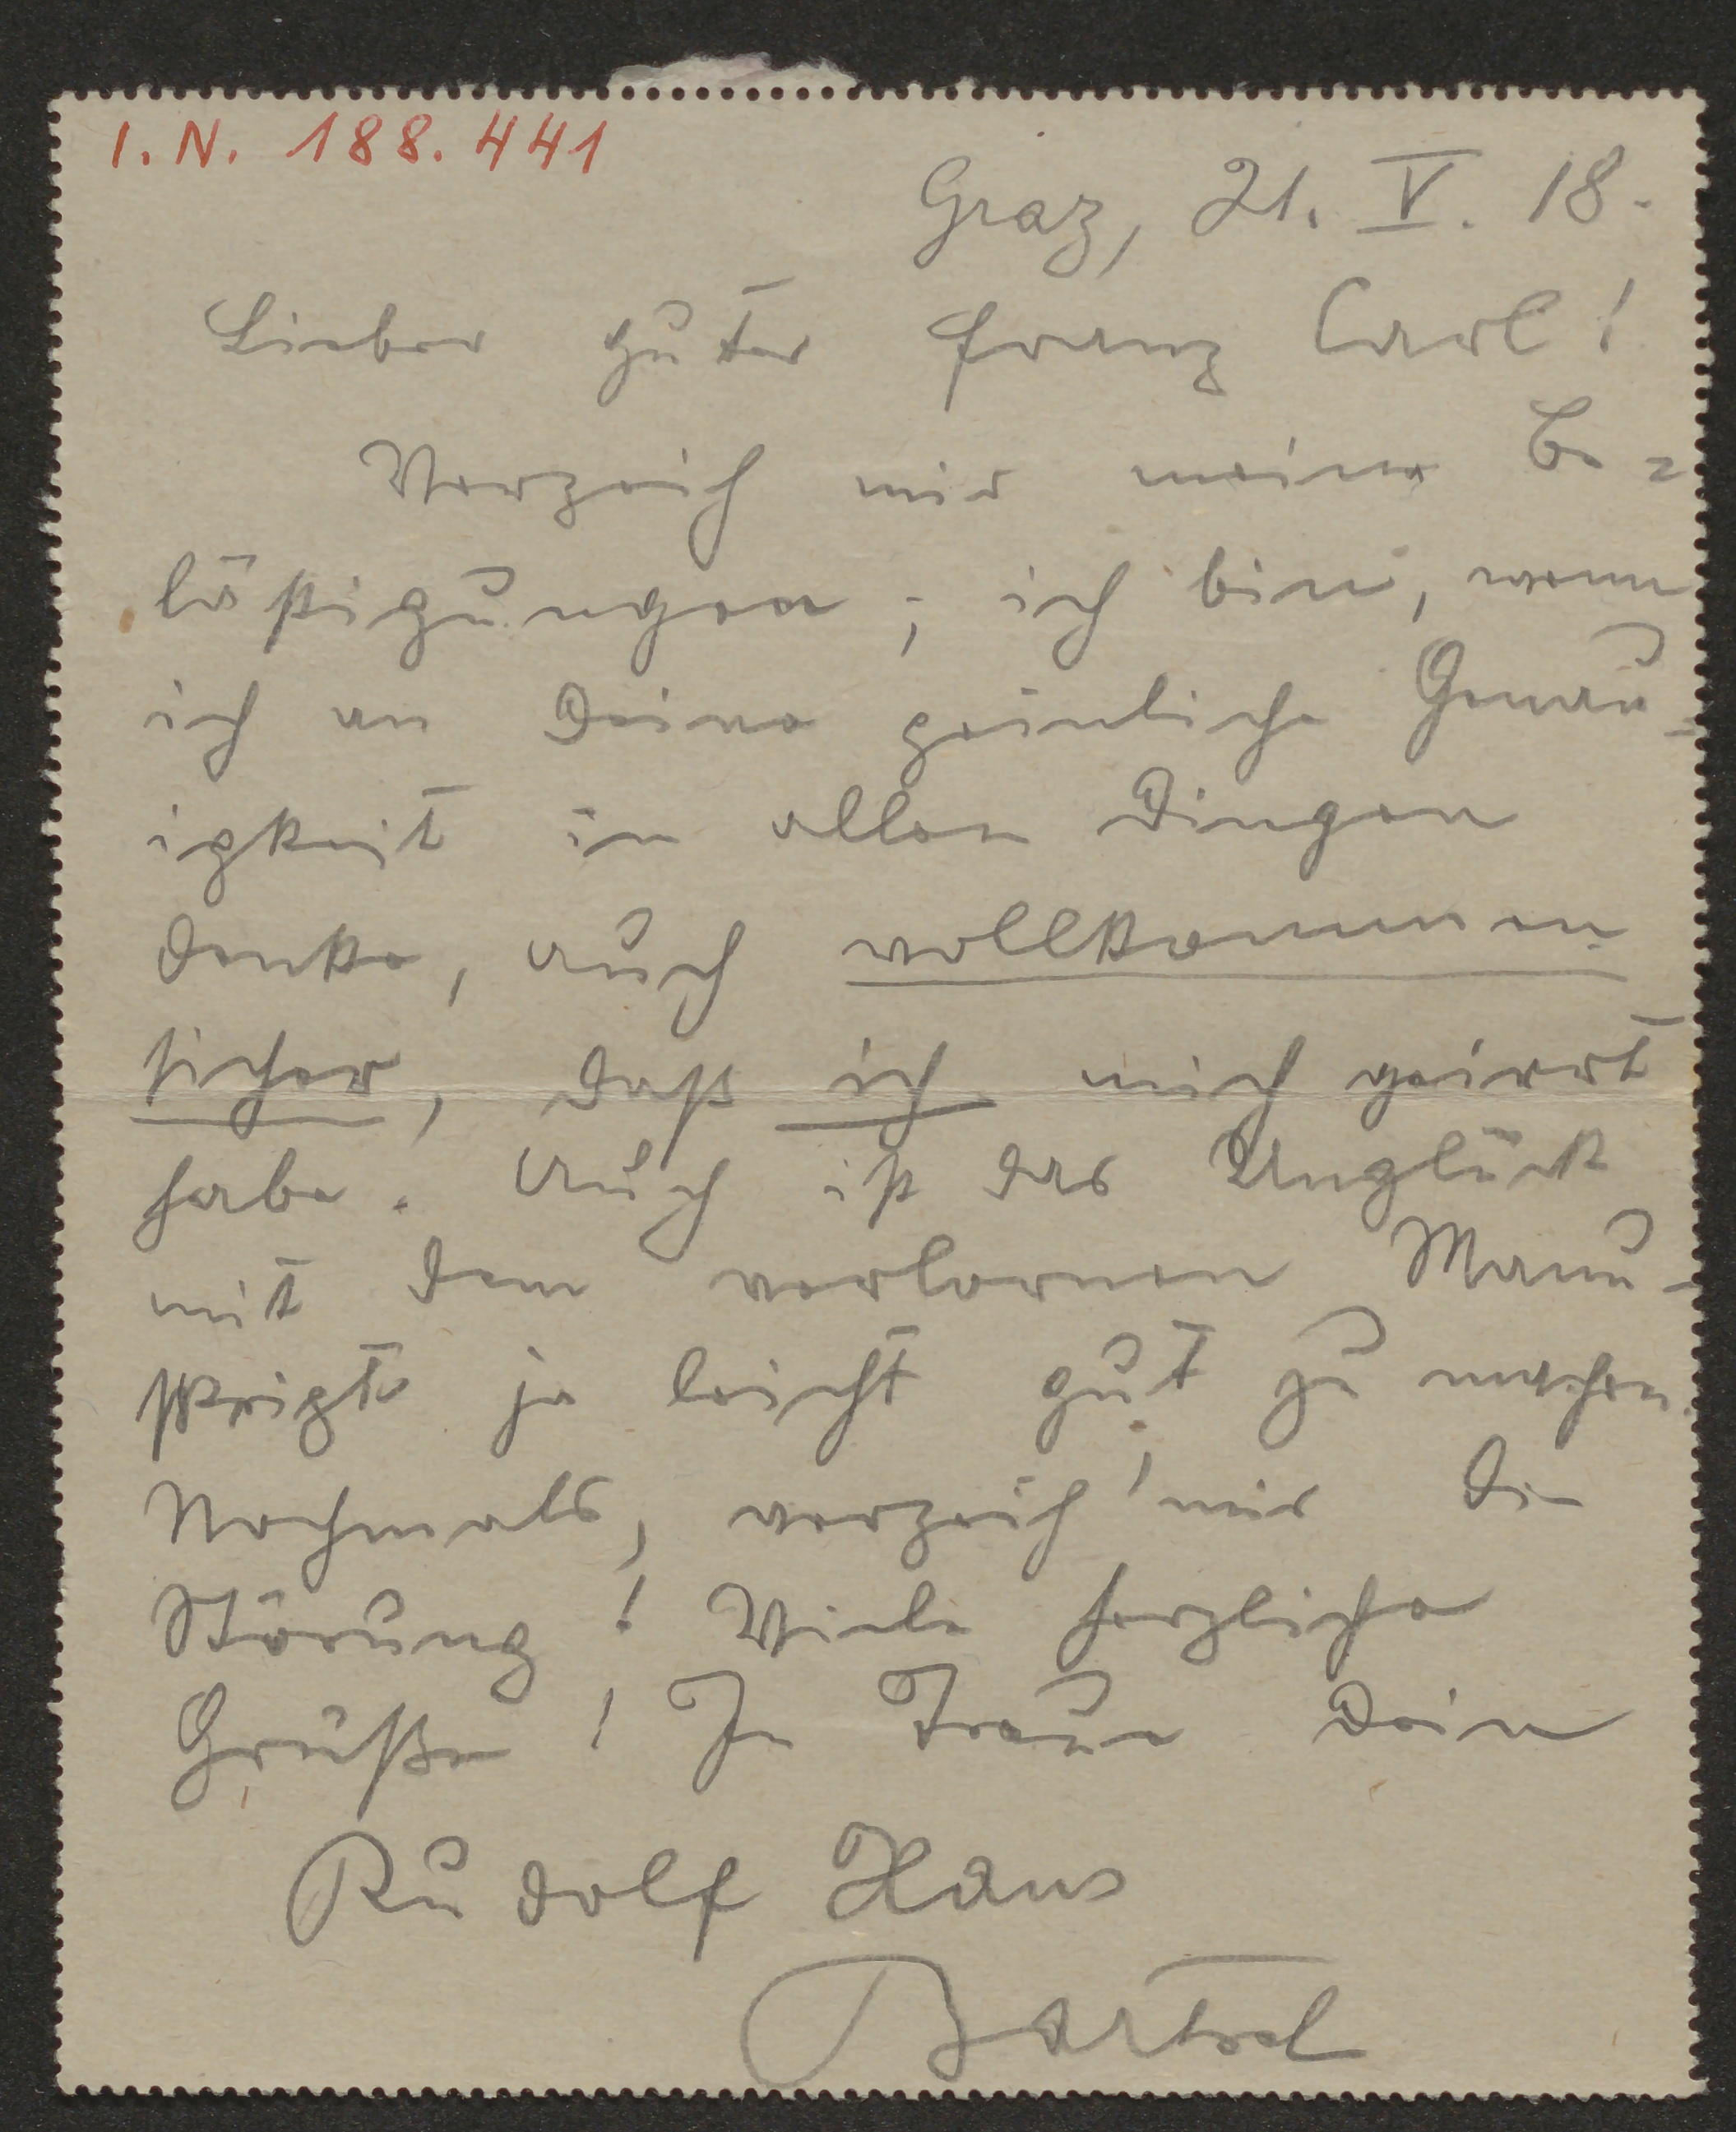 I. N. 188.441
Graz, 21. V. 18.
Lieber guter Franz Carl!
Verzeih mir meine Be=
lästigungen; ich bin, wenn
ich an Deine peinliche Genau-
igkeit in allen Dingen
denke, auch vollkommen
sicher, daß ich mich geirrt
habe. Auch ist das Unglück
mit dem verlornen Manu-
skripte ja leicht gut zu machen.
Nochmals, verzeih' mir die
Störung! Viele herzliche
Grüße! In Treue Dein
Rudolf Hans
Bartsch